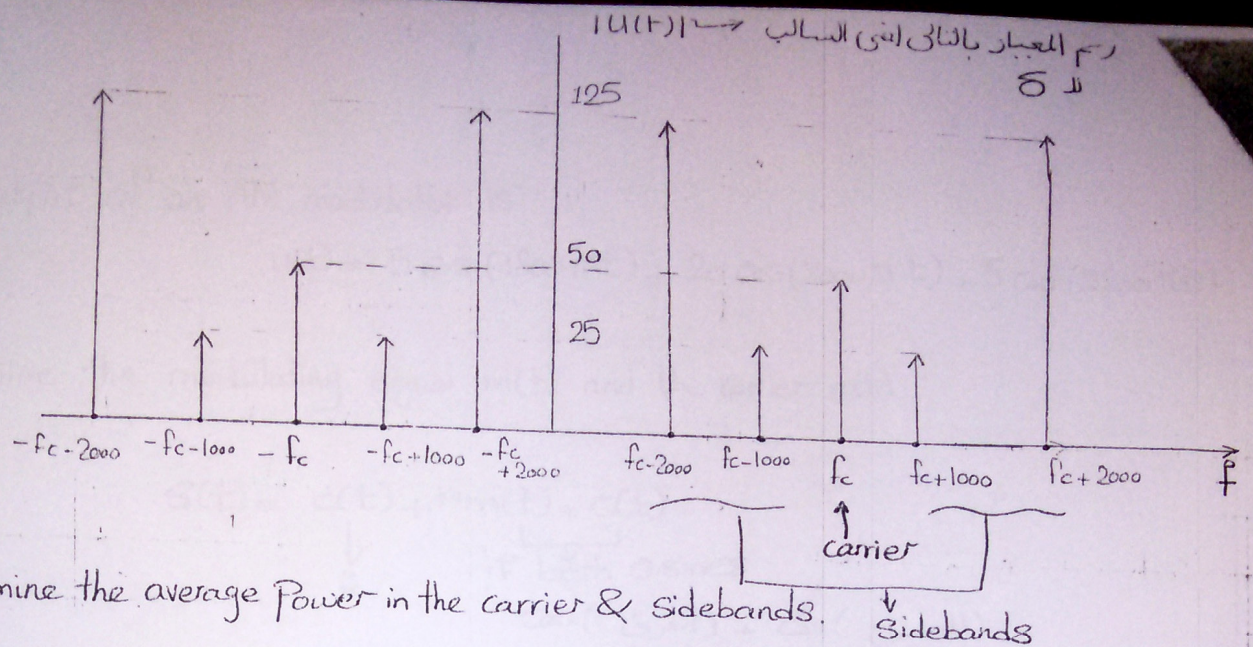 |U(f)| → رسم المعيار بالتالى السالب
لا δ
125
50
25
-fc-2000 -fc-1000 -fc -fc+1000 -fc
+2000
fc-2000 fc-1000 fc fc+1000 fc+2000 f
Carrier
mine the average Power in the carrier & sidebands.
Sidebands